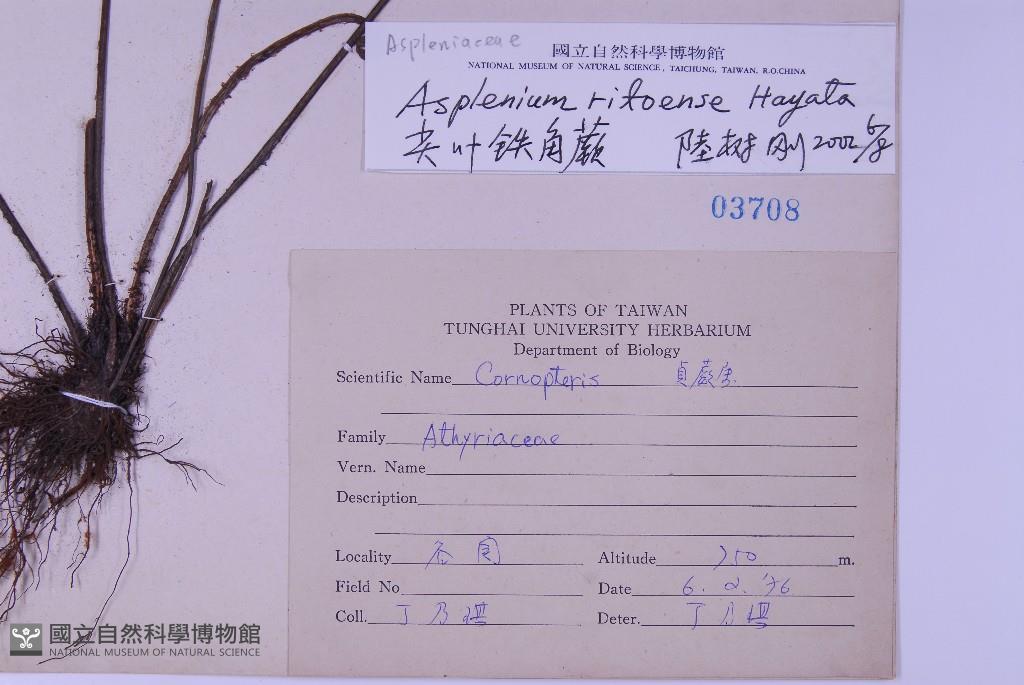 Aspleniaceae
國立自然科學博物館
NATIONAL MUSEUM OF NATURAL SCIENCE, TAICHUNG, TAIWAN, R.O.CHINA
Asplenium ritoense Hayata
尖叶铁角蕨 陸树刚 2002 6/8
03708
PLANTS OF TAIWAN
TUNGHAI UNIVERSITY HERBARIUM
Department of Biology
Scientific Name Cornopteris 貞蕨屬
Family Athyriaceae
Vern. Name
Description
Locality Altitude 750 m.
Field No Date 6. 2. '76
Coll. 丁乃 Deter. 丁乃
國立自然科學博物館
NATIONAL MUSEUM OF NATURAL SCIENCE